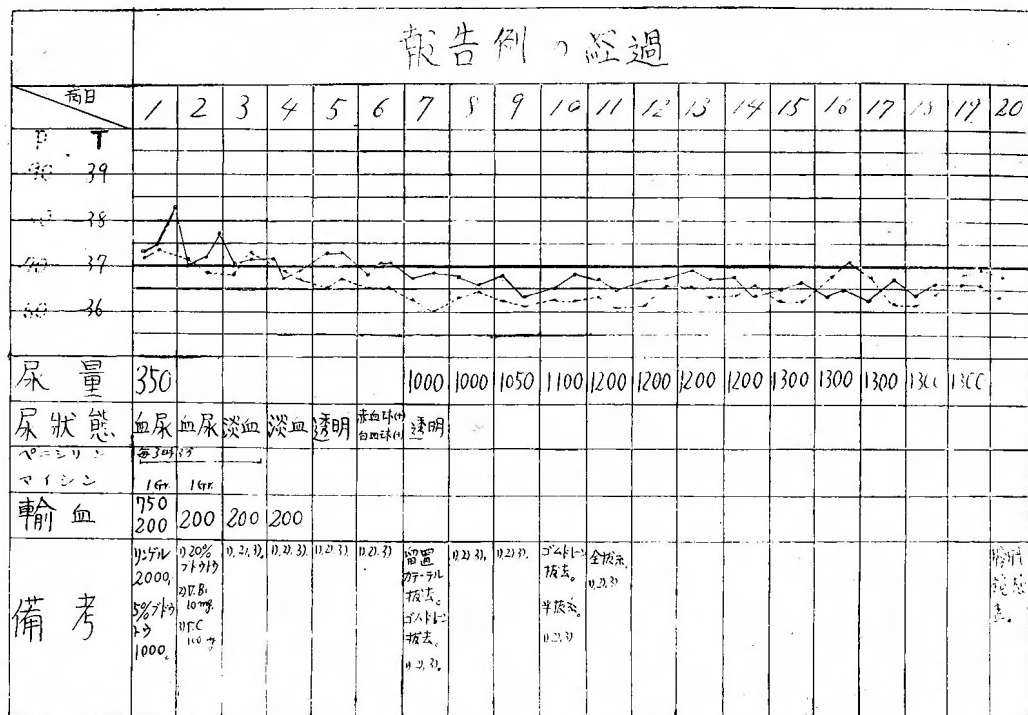 報告例の経過
病日 1 2 3 4 5 6 7 8 9 10 11 12 13 14 15 16 17 18 19 20
P T
90 39
38
37
60 36
尿量 350 1000 1000 1050 1100 1200 1200 1200 1200 1300 1300 1300 1300 1300
尿狀態 血尿 血尿 淡血 淡血 透明 赤血球(+) 透明
白血球(+)
ペニシリン
マイシン 1Gr. 1Gr.
輸血 750 200 200 200
200
備考
リンゲル
2000.
5%ブドウ
トウ
1000.
1) 20%
ブドウトウ
2) V.B1
10mg.
3) V.C
1). 2). 3).
1). 2). 3).
1). 2). 3).
1). 2). 3)
留置
カテーテル
抜去。
ゴムドレーン
抜去。
1). 2). 3).
1). 2). 3).
1). 2). 3).
ゴムドレーン
抜去。
半抜糸。
1). 2). 3)
全抜糸.
1). 2). 3)